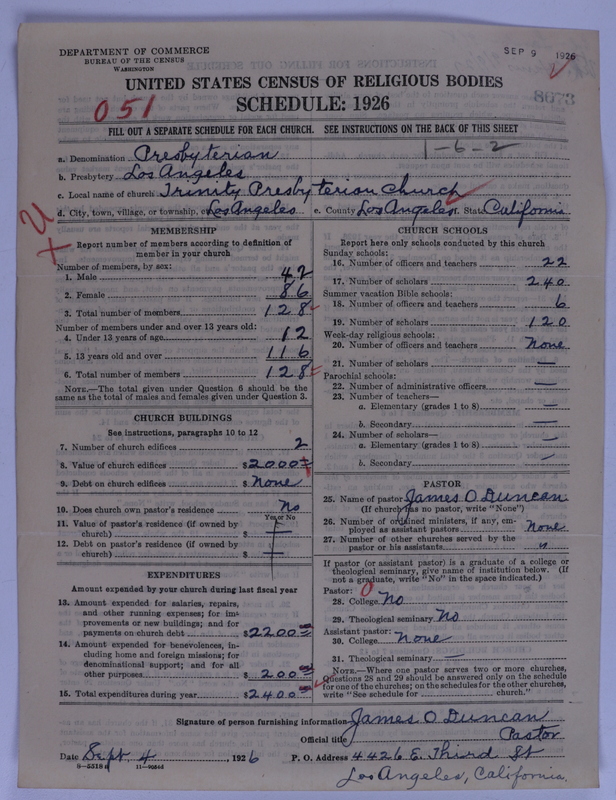 DEPARTMENT OF COMMERCE
BUREAU OF THE CENSUS
WASHINGTON
SEP 9 1926
UNITED STATES CENSUS OF RELIGIOUS BODIES
SCHEDULE: 1926
051
8673
FILL OUT A SEPARATE SCHEDULE FOR EACH CHURCH. SEE INSTRUCTIONS ON THE BACK OF THIS SHEET
1-6-2
a. Denomination Presbyterian
b. Presbytery Los Angeles
c. Local name of church Trinity Presbyterian Church
d. City, town, village, or township, of Los Angeles e. County Los Angeles f. State California
MEMBERSHIP
Report number of members according to definition of
member in your church
Number of members, by sex:
1. Male 42
2. Female 86
3. Total number of members 128
Number of members under and over 13 years old:
4. Under 13 years of age 12
5. 13 years old and over 116
6. Total number of members 128
NOTE.—The total given under Question 6 should be
same as the total of males and females given under Question 3.
CHURCH BUILDINGS
See instructions, paragraphs 10 to 12
7. Number of church edifices 2
8. Value of church edifices $2000
9. Debt on church edifices $None
10. Does church own pastor's residence No
Yes or No
11. Value of pastor's residence (if owned by
church) $
12. Debt on pastor's residence (if owned by
church) $
EXPENDITURES
Amount expended by your church during last fiscal year
13. Amount expended for salaries, repairs,
and other running expenses; for im-
provements or new buildings; and for
payments on church debt $2200
14. Amount expended for benevolences, in-
cluding home and foreign missions; for
denominational support; and for all
other purposes $200
15. Total expenditures during year $2400
CHURCH SCHOOLS
Report here only schools conducted by this church
Sunday schools:
16. Number of officers and teachers 22
17. Number of scholars 240
Summer vacation Bible schools:
18. Number of officers and teachers 6
19. Number of scholars 120
Week-day religious schools:
20. Number of officers and teachers None
21. Number of scholars —
Parochial schools:
22. Number of administrative officers —
23. Number of teachers—
a. Elementary (grades 1 to 8) —
b. Secondary —
24. Number of scholars—
a. Elementary (grades 1 to 8) —
b. Secondary —
PASTOR
25. Name of pastor James O Duncan
(If church has no pastor, write "None")
26. Number of ordained ministers, if any, em-
ployed as assistant pastors None
27. Number of other churches served by the
pastor or his assistants "
If pastor (or assistant pastor) is a graduate of a college or
theological seminary, give name of institution below. (If
not a graduate, write "No" in the space indicated.)
Pastor: 0
28. College No
29. Theological seminary No
Assistant pastor:
30. College None
31. Theological seminary —
NOTE.—Where one pastor serves two or more churches,
Questions 28 and 29 should be answered only on the schedule
for one of the churches; on the schedules for the other churches,
write "See schedule for church."
Signature of person furnishing information James O Duncan
Official title Pastor
Date Sept 4, 1926 P. O. Address 4426 E. Third St
Los Angeles, California.